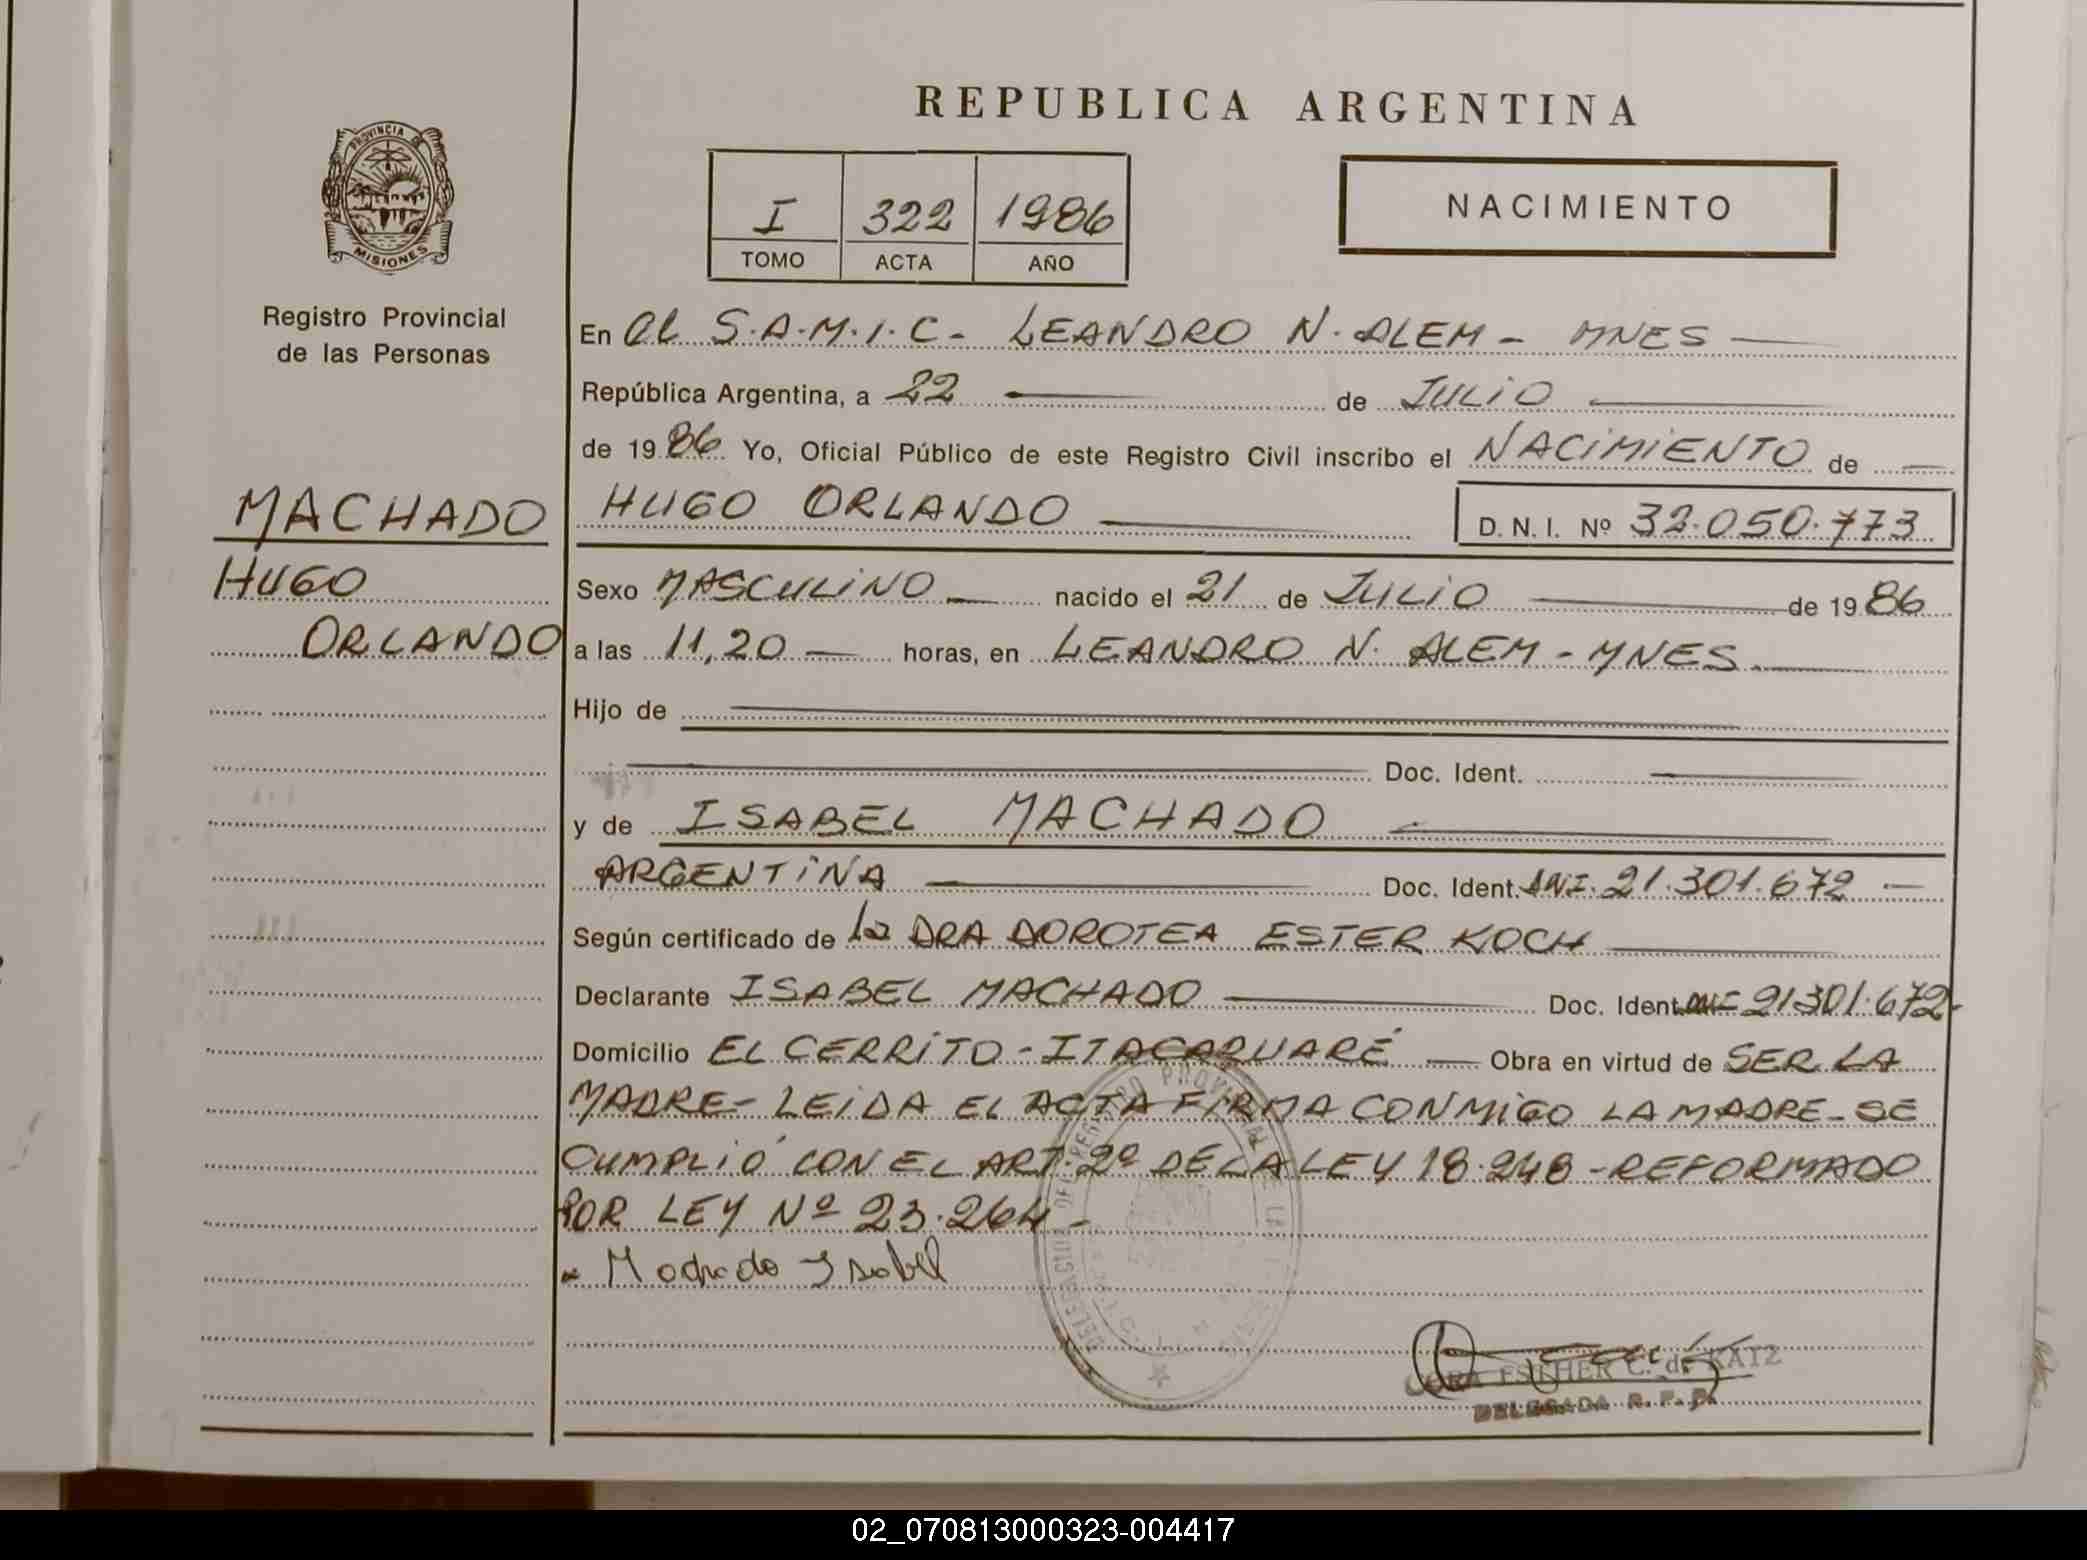 REPUBLICA ARGENTINA
PROVINCIA DE
MISIONES
Registro Provincial
de las Personas
I 322 1986
TOMO ACTA AÑO
NACIMIENTO
En el S.A.M.I.C- LEANDRO N. ALEM - MNES
República Argentina, a 22 de JULIO
de 1986 Yo, Oficial Público de este Registro Civil inscribo el NACIMIENTO de
HUGO ORLANDO D. N. I. Nº 32.050.773
MACHADO
HUGO
ORLANDO
Sexo MASCULINO nacido el 21 de JULIO de 1986
a las 11,20 horas, en LEANDRO N. ALEM - MNES
Hijo de
Doc. Ident.
y de ISABEL MACHADO
ARGENTINA Doc. Ident. DNI. 21.301.672
Según certificado de la DRA DOROTEA ESTER KOCH
Declarante ISABEL MACHADO Doc. Ident. DNI 21.301.672-
Domicilio EL CERRITO - ITACARUARÉ Obra en virtud de SER LA
MADRE- LEIDA EL ACTA FIRMA CONMIGO LA MADRE- SE
CUMPLIÓ CON EL ART. 2º DE LA LEY 18.248 - REFORMADO
POR LEY Nº 23.264 -
Machado Isabel
CORA ESTHER C. de KATZ
DELEGADA R. P. P.
02_070813000323-004417